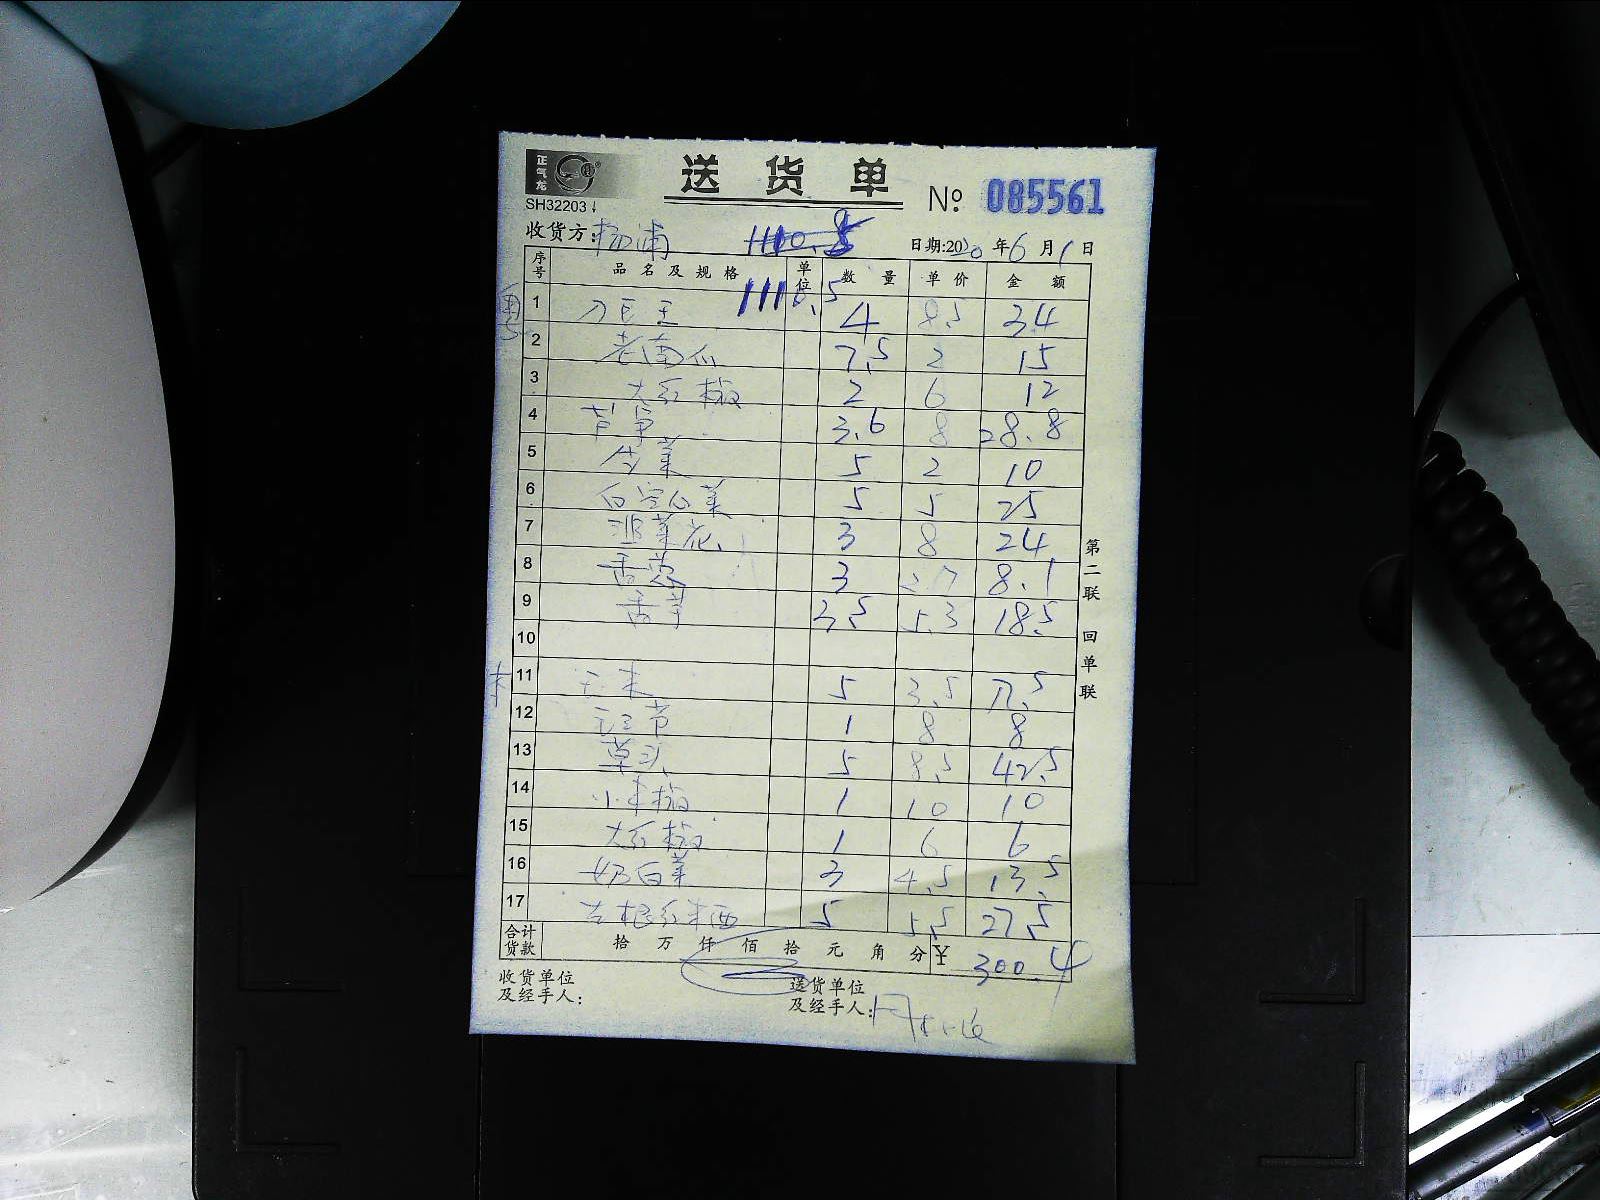 正气龙
送 货 单
№ 085561
SH32203
收货方: 杨浦
日期:2020 年 6 月 1 日
序号 品 名 及 规 格 单位 数 量 单 价 金 额
1118.5
1 刀豆王 4 8.5 34
2 老南瓜 7.5 2 15
3 大红椒 2 6 12
4 3.6 8 28.8
5 菜 5 2 10
6 白空心菜 5 5 25
7 韭菜花 3 8 24
8 香葱 3 2.7 8.1
9 香芹 3.5 5.3 18.5
10
11 玉米 5 3.5 17.5
12 1 8 8
13 草头 5 8.5 42.5
14 小米椒 1 10 10
15 大红椒 1 6 6
16 奶白菜 3 4.5 13.5
17 5 5.5 27.5
合计货款 拾 万 仟 佰 拾 元 角 分 ¥ 300.4
收货单位
及经手人:
送货单位
及经手人:
第二联 回单联